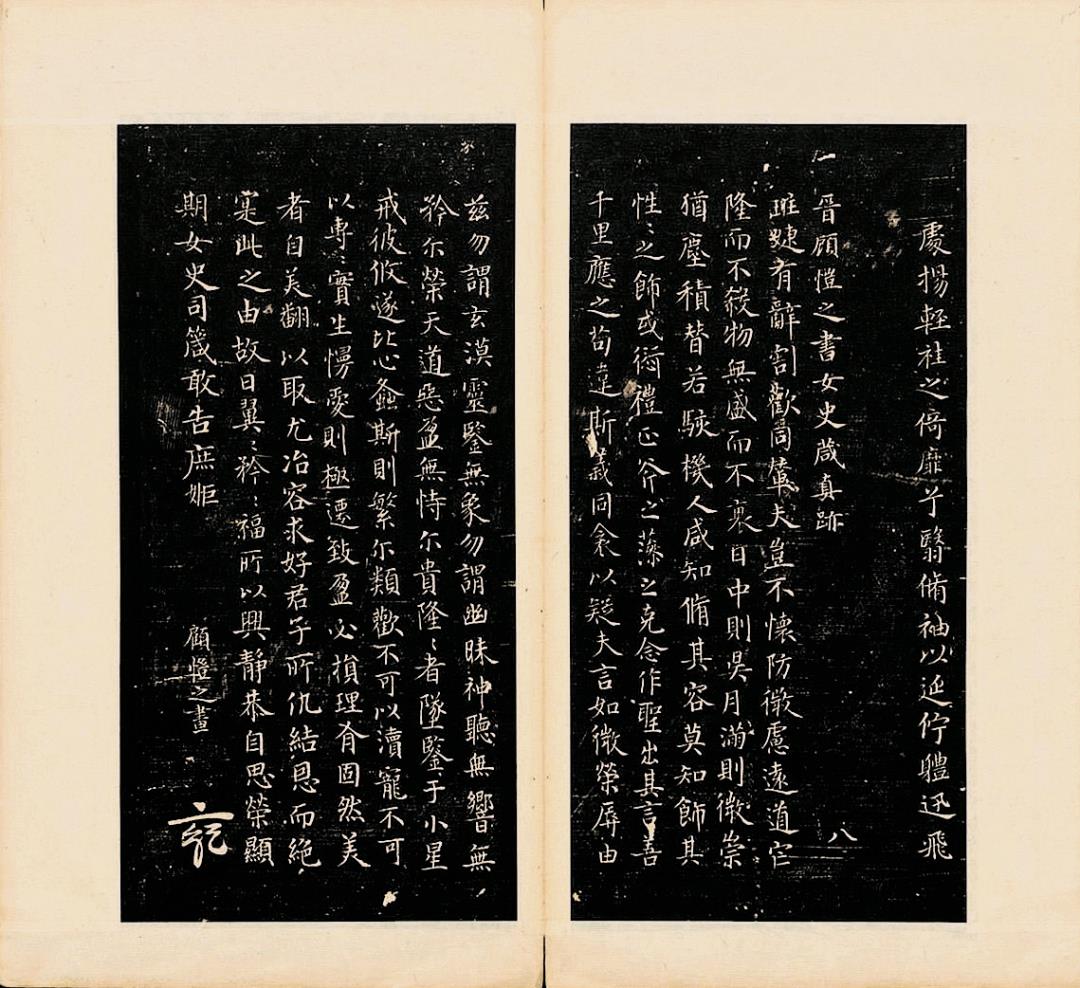 處揚輕袿之倚靡兮翳脩袖以延佇體迅飛
晉顧愷之書女史葴真跡
班婕有辭割歡同輦夫豈不懷防微慮遠道它
八
隆而不殺物無盛而不衰日中則昃月滿則微崇
猶塵積替若駭機人咸知脩其容莫知飾其
性〻之飾或衍禮正斧之藻之克念作聖出其言善
千里應之苟違斯義同衾以疑夫言如微榮辱由
茲勿謂玄漠靈鑒無象勿謂幽昧神聽無響無
矜尓榮天道惡盈無恃尓貴隆〻者墜鑒于小星
戒彼攸遂比心螽斯則繁尓類歡不可以瀆寵不可
以專〻實生慢愛則極遷致盈必損理有固然美
者自美翩以取尤冶容求好君子所仇結恩而絕
寔此之由故曰翼〻矜〻福所以興靜恭自思榮顯
期女史司箴敢告庶姬
顧愷之畫